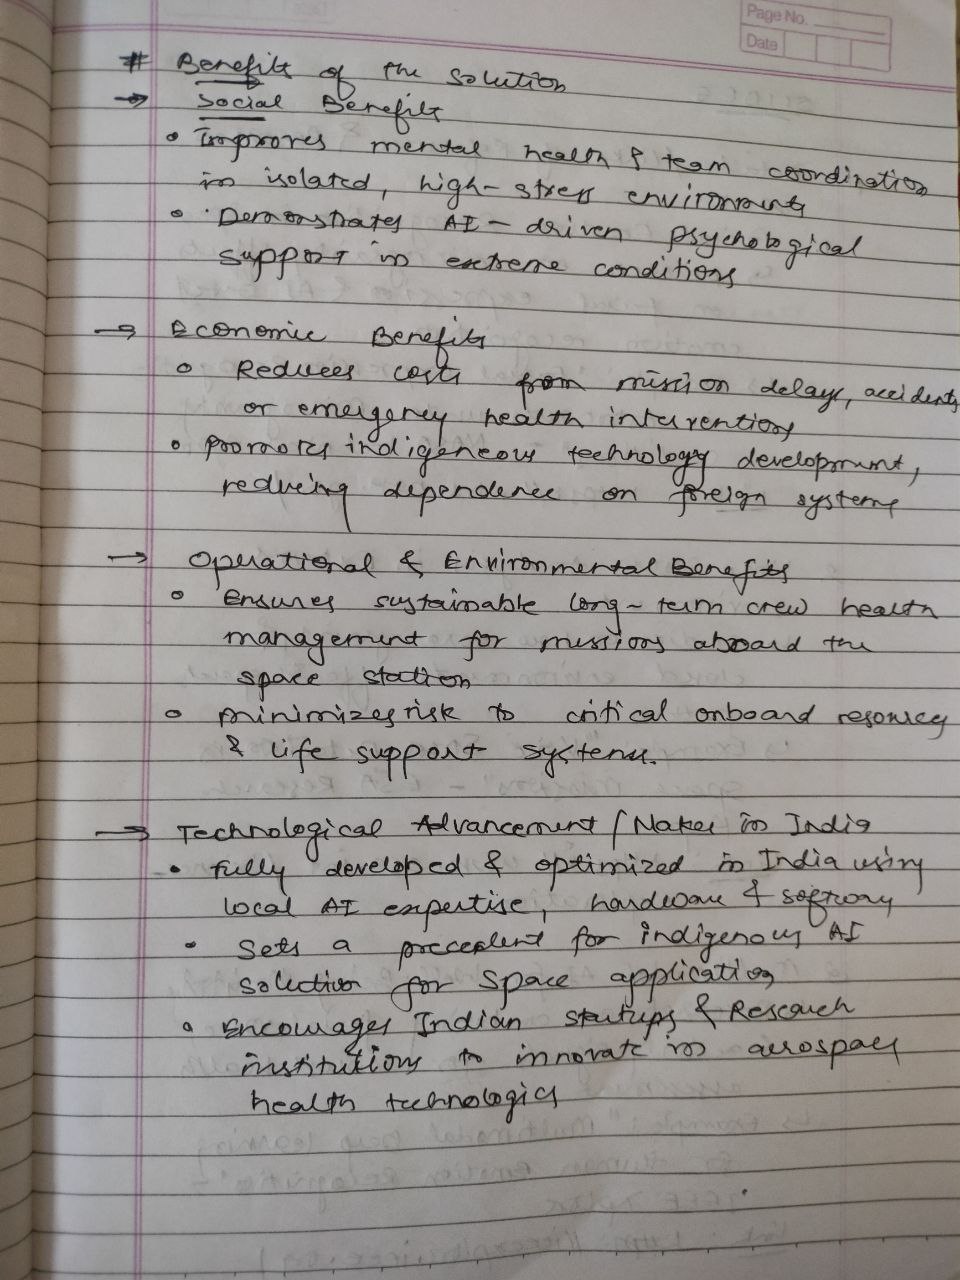 Page No.
Date
# Benefits of the solution
→ Social Benefits
• Improves mental health & team coordination
in isolated, high-stress environments
• Demonstrates AI-driven psychological
support in extreme conditions
→ Economic Benefits
• Reduces costs from mission delays, accidents,
or emergency health interventions
• Promotes indigeneous technology development,
reducing dependence on foreign systems
→ Operational & Environmental Benefits
• Ensures sustainable long-term crew health
management for missions aboard the
space station
• Minimizes risk to critical onboard resources
& life support systems.
→ Technological Advancement / Make in India
• Fully developed & optimized in India using
local AI expertise, hardware & software
• Sets a precedent for indigenous AI
solution for space application
• Encourages Indian startups & Research
institutions to innovate in aerospace
health technologies